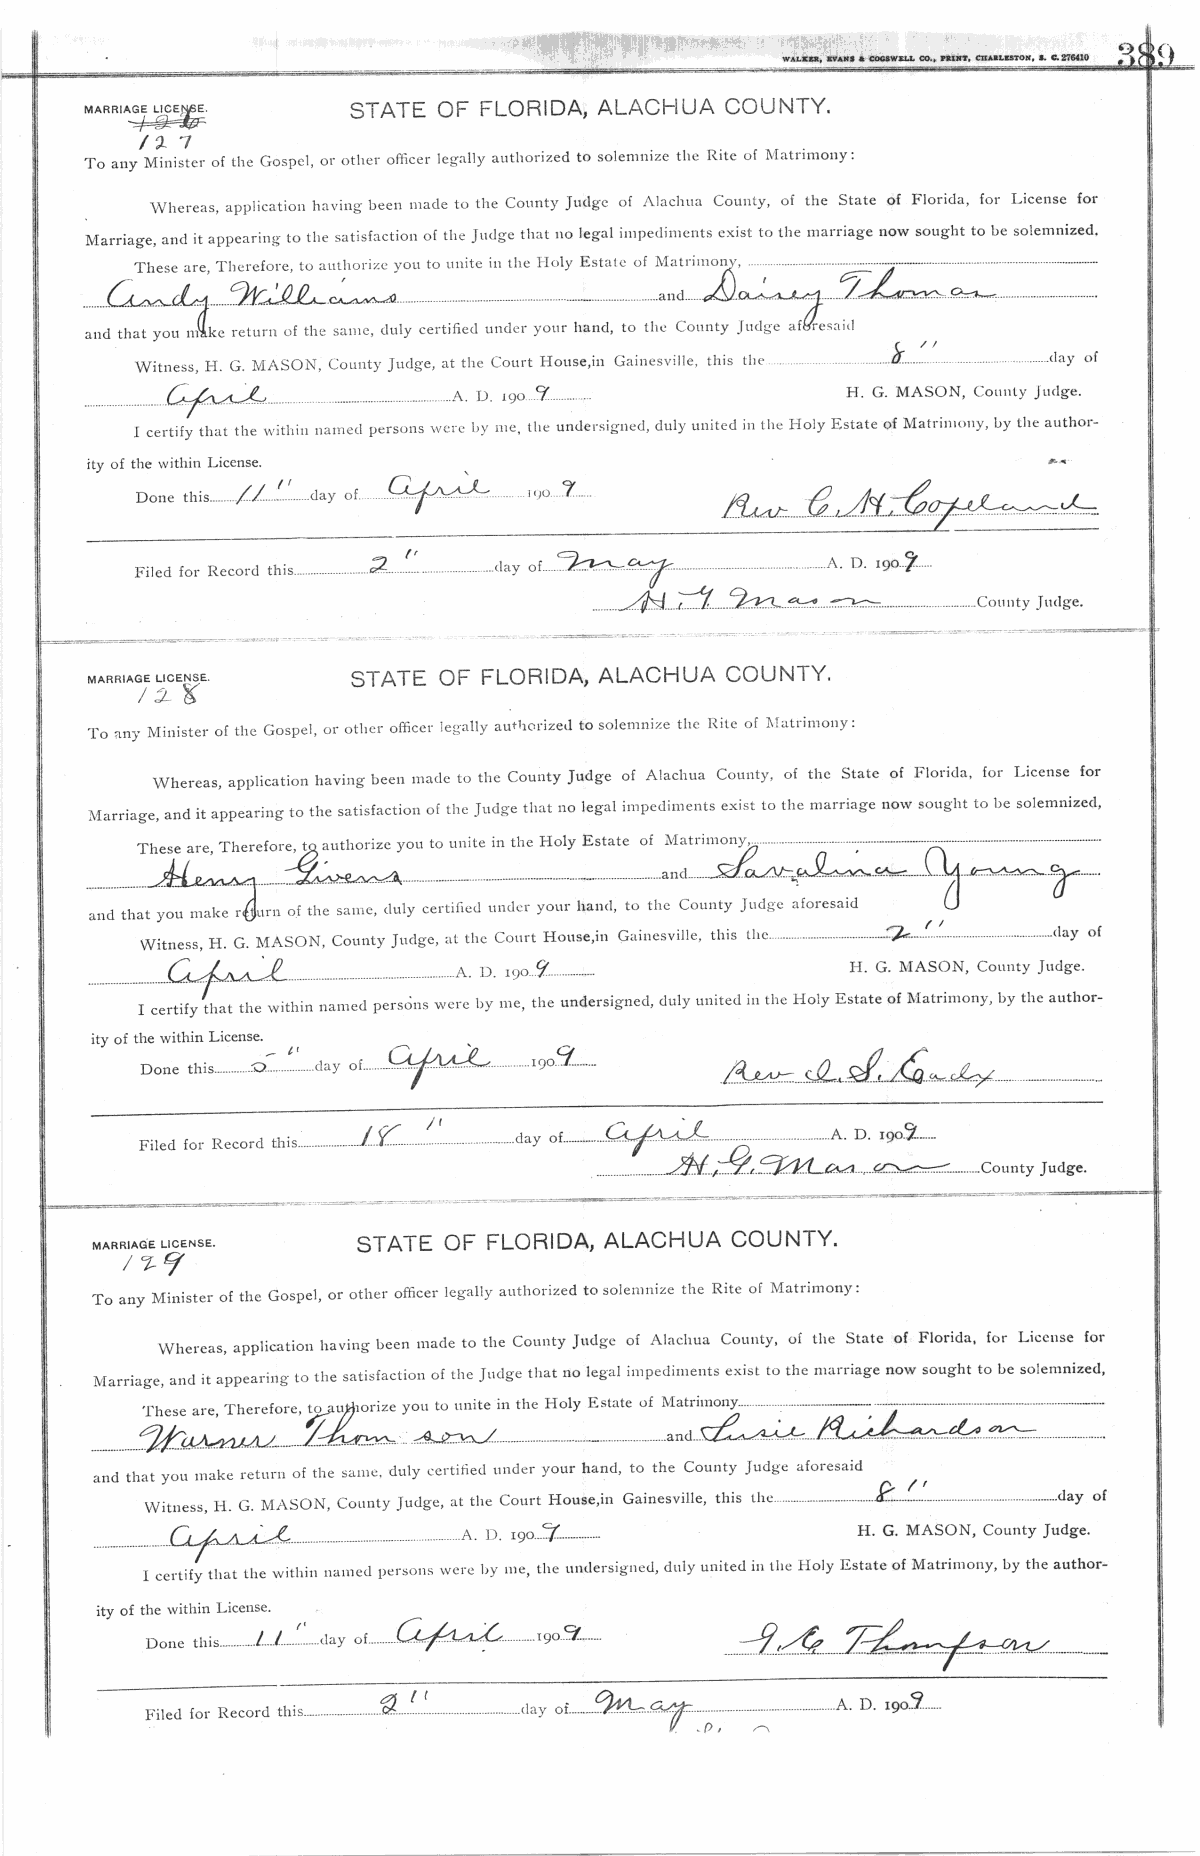 WALKER, EVANS & COGSWELL CO., PRINT, CHARLESTON, S. C. 276410 389
MARRIAGE LICENSE. STATE OF FLORIDA, ALACHUA COUNTY.
126
127
To any Minister of the Gospel, or other officer legally authorized to solemnize the Rite of Matrimony:
Whereas, application having been made to the County Judge of Alachua County, of the State of Florida, for License for
Marriage, and it appearing to the satisfaction of the Judge that no legal impediments exist to the marriage now sought to be solemnized.
These are, Therefore, to authorize you to unite in the Holy Estate of Matrimony,
Andy Williams and Daisey Thomas
and that you make return of the same, duly certified under your hand, to the County Judge aforesaid
Witness, H. G. MASON, County Judge, at the Court House,in Gainesville, this the 8" day of
April A. D. 1909 H. G. MASON, County Judge.
I certify that the within named persons were by me, the undersigned, duly united in the Holy Estate of Matrimony, by the author-
ity of the within License.
Done this 11" day of April 1909
Rev C. H. Copeland
Filed for Record this 2" day of May A. D. 1909
H. G Mason County Judge.
MARRIAGE LICENSE. STATE OF FLORIDA, ALACHUA COUNTY.
128
To any Minister of the Gospel, or other officer legally authorized to solemnize the Rite of Matrimony:
Whereas, application having been made to the County Judge of Alachua County, of the State of Florida, for License for
Marriage, and it appearing to the satisfaction of the Judge that no legal impediments exist to the marriage now sought to be solemnized,
These are, Therefore, to authorize you to unite in the Holy Estate of Matrimony,
Henry Givens and Savalina Young
and that you make return of the same, duly certified under your hand, to the County Judge aforesaid
Witness, H. G. MASON, County Judge, at the Court House,in Gainesville, this the 2" day of
April A. D. 1909 H. G. MASON, County Judge.
I certify that the within named persons were by me, the undersigned, duly united in the Holy Estate of Matrimony, by the author-
ity of the within License.
Done this 5" day of April 1909
Rev S.
Filed for Record this 18" day of April A. D. 1909
H. G. Mason County Judge.
MARRIAGE LICENSE. STATE OF FLORIDA, ALACHUA COUNTY.
129
To any Minister of the Gospel, or other officer legally authorized to solemnize the Rite of Matrimony:
Whereas, application having been made to the County Judge of Alachua County, of the State of Florida, for License for
Marriage, and it appearing to the satisfaction of the Judge that no legal impediments exist to the marriage now sought to be solemnized,
These are, Therefore, to authorize you to unite in the Holy Estate of Matrimony
Warner Thom son and Susie Richardson
and that you make return of the same, duly certified under your hand, to the County Judge aforesaid
Witness, H. G. MASON, County Judge, at the Court House,in Gainesville, this the 8" day of
April A. D. 1909 H. G. MASON, County Judge.
I certify that the within named persons were by me, the undersigned, duly united in the Holy Estate of Matrimony, by the author-
ity of the within License.
Done this 11" day of April 1909
Thompson
Filed for Record this 2" day of May A. D. 1909